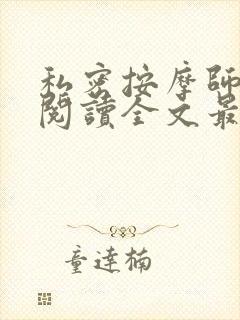 私密按摩師
閱讀全文最
童達楠